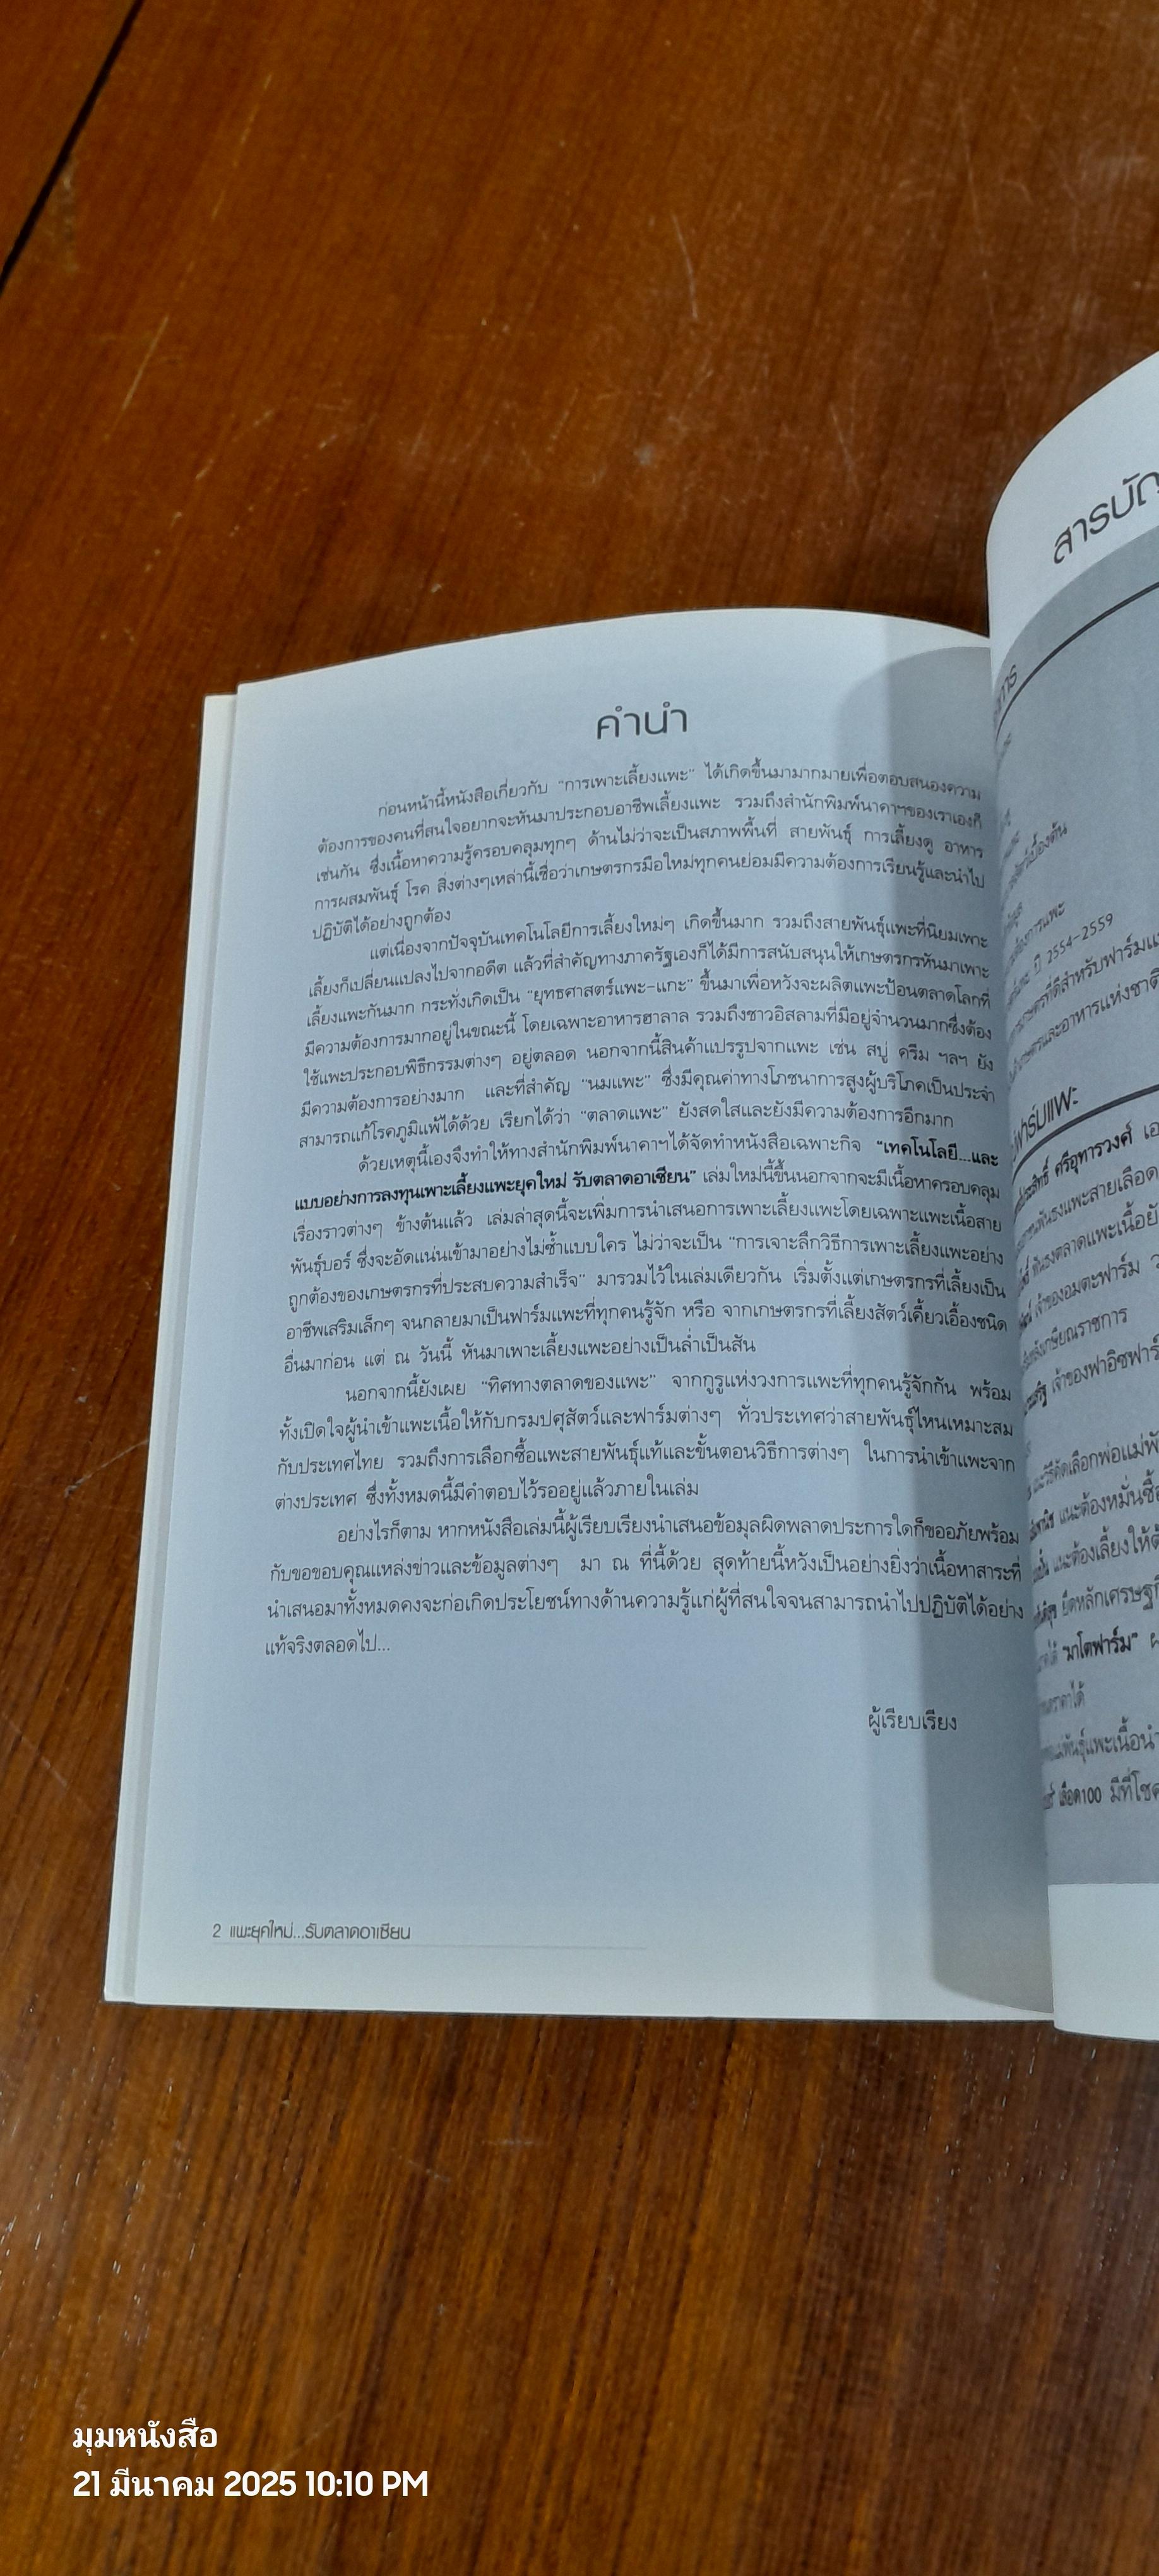 คำนำ
ก่อนหน้านี้หนังสือเกี่ยวกับ "การเพาะเลี้ยงแพะ" ได้เกิดขึ้นมามากมายเพื่อตอบสนองความ
ต้องการของคนที่สนใจอยากจะหันมาประกอบอาชีพเลี้ยงแพะ รวมถึงสำนักพิมพ์นาคาฯของเราเองก็
เช่นกัน ซึ่งเนื้อหาความรู้ครอบคลุมทุกๆ ด้านไม่ว่าจะเป็นสภาพพื้นที่ สายพันธุ์ การเลี้ยงดู อาหาร
การผสมพันธุ์ โรค สิ่งต่างๆเหล่านี้เชื่อว่าเกษตรกรมือใหม่ทุกคนย่อมมีความต้องการเรียนรู้และนำไป
ปฏิบัติได้อย่างถูกต้อง
แต่เนื่องจากปัจจุบันเทคโนโลยีการเลี้ยงใหม่ๆ เกิดขึ้นมาก รวมถึงสายพันธุ์แพะที่นิยมเพาะ
เลี้ยงก็เปลี่ยนแปลงไปจากอดีต แล้วที่สำคัญทางภาครัฐเองก็ได้มีการสนับสนุนให้เกษตรกรหันมาเพาะ
เลี้ยงแพะกันมาก กระทั่งเกิดเป็น "ยุทธศาสตร์แพะ-แกะ" ขึ้นมาเพื่อหวังจะผลิตแพะป้อนตลาดโลกที่
มีความต้องการมากอยู่ในขณะนี้ โดยเฉพาะอาหารฮาลาล รวมถึงชาวอิสลามที่มีอยู่จำนวนมากซึ่งต้อง
ใช้แพะประกอบพิธีกรรมต่างๆ อยู่ตลอด นอกจากนี้สินค้าแปรรูปจากแพะ เช่น สบู่ ครีม ฯลฯ ยัง
มีความต้องการอย่างมาก และที่สำคัญ "นมแพะ" ซึ่งมีคุณค่าทางโภชนาการสูงผู้บริโภคเป็นประจำ
สามารถแก้โรคภูมิแพ้ได้ด้วย เรียกได้ว่า "ตลาดแพะ" ยังสดใสและยังมีความต้องการอีกมาก
ด้วยเหตุนี้เองจึงทำให้ทางสำนักพิมพ์นาคาฯได้จัดทำหนังสือเฉพาะกิจ "เทคโนโลยี...และ
แบบอย่างการลงทุนเพาะเลี้ยงแพะยุคใหม่ รับตลาดอาเซียน" เล่มใหม่นี้ขึ้นนอกจากจะมีเนื้อหาครอบคลุม
เรื่องราวต่างๆ ข้างต้นแล้ว เล่มล่าสุดนี้จะเพิ่มการนำเสนอการเพาะเลี้ยงแพะโดยเฉพาะแพะเนื้อสาย
พันธุ์บอร์ ซึ่งจะอัดแน่นเข้ามาอย่างไม่ซ้ำแบบใคร ไม่ว่าจะเป็น "การเจาะลึกวิธีการเพาะเลี้ยงแพะอย่าง
ถูกต้องของเกษตรกรที่ประสบความสำเร็จ" มารวมไว้ในเล่มเดียวกัน เริ่มตั้งแต่เกษตรกรที่เลี้ยงเป็น
อาชีพเสริมเล็กๆ จนกลายมาเป็นฟาร์มแพะที่ทุกคนรู้จัก หรือ จากเกษตรกรที่เลี้ยงสัตว์เคี้ยวเอื้องชนิด
อื่นมาก่อน แต่ ณ วันนี้ หันมาเพาะเลี้ยงแพะอย่างเป็นล่ำเป็นสัน
นอกจากนี้ยังเผย "ทิศทางตลาดของแพะ" จากกูรูแห่งวงการแพะที่ทุกคนรู้จักกัน พร้อม
ทั้งเปิดใจผู้นำเข้าแพะเนื้อให้กับกรมปศุสัตว์และฟาร์มต่างๆ ทั่วประเทศว่าสายพันธุ์ไหนเหมาะสม
กับประเทศไทย รวมถึงการเลือกซื้อแพะสายพันธุ์แท้และขั้นตอนวิธีการต่างๆ ในการนำเข้าแพะจาก
ต่างประเทศ ซึ่งทั้งหมดนี้มีคำตอบไว้รออยู่แล้วภายในเล่ม
อย่างไรก็ตาม หากหนังสือเล่มนี้ผู้เรียบเรียงนำเสนอข้อมูลผิดพลาดประการใดก็ขออภัยพร้อม
กับขอขอบคุณแหล่งข่าวและข้อมูลต่างๆ มา ณ ที่นี้ด้วย สุดท้ายนี้หวังเป็นอย่างยิ่งว่าเนื้อหาสาระที่
นำเสนอมาทั้งหมดคงจะก่อเกิดประโยชน์ทางด้านความรู้แก่ผู้ที่สนใจจนสามารถนำไปปฏิบัติได้อย่าง
แท้จริงตลอดไป...
ผู้เรียบเรียง
2 แพะยุคใหม่...รับตลาดอาเซียน
ปี 2554-2559
ศรีอุทารวงศ์
เจ้าของอมตะฟาร์ม
แนะต้องหมั่น
แนะต้องเลี้ยงให้
"มาโตฟาร์ม"
เลือด100 มีที่
มุมหนังสือ
21 มีนาคม 2025 10:10 PM